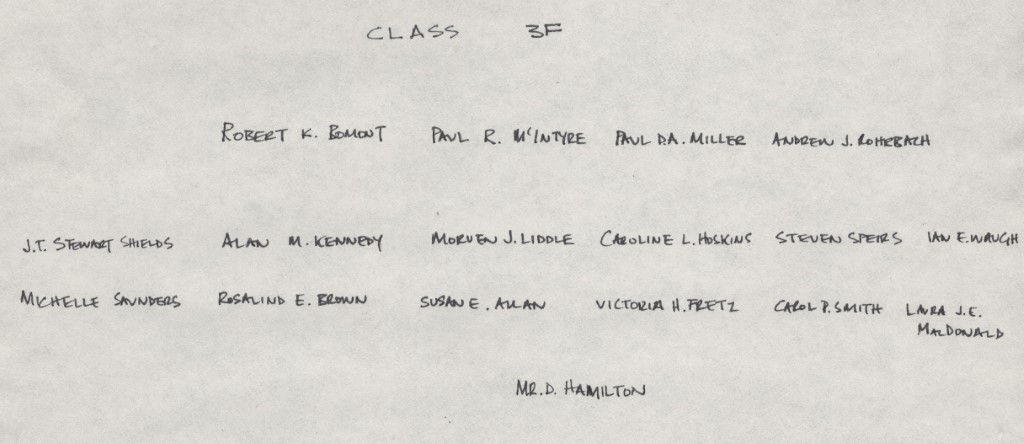 CLASS 3F
ROBERT K. BOMONT PAUL R. McINTYRE PAUL D.A. MILLER ANDREW J. ROHRBACH
J.T. STEWART SHIELDS ALAN M. KENNEDY MORVEN J. LIDDLE CAROLINE L. HOSKINS STEVEN SPEIRS IAN E. WAUGH
MICHELLE SAUNDERS ROSALIND E. BROWN SUSAN E. ALLAN VICTORIA H. FRETZ CAROL P. SMITH LAURA J.E.
MACDONALD
MR. D. HAMILTON